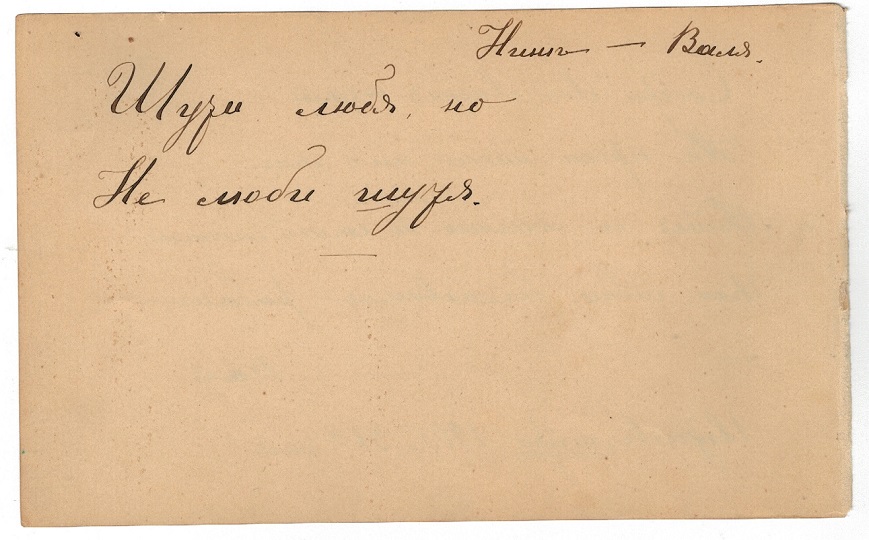 Нинѣ — Валя.
Шути любя, но
Не люби шутя.